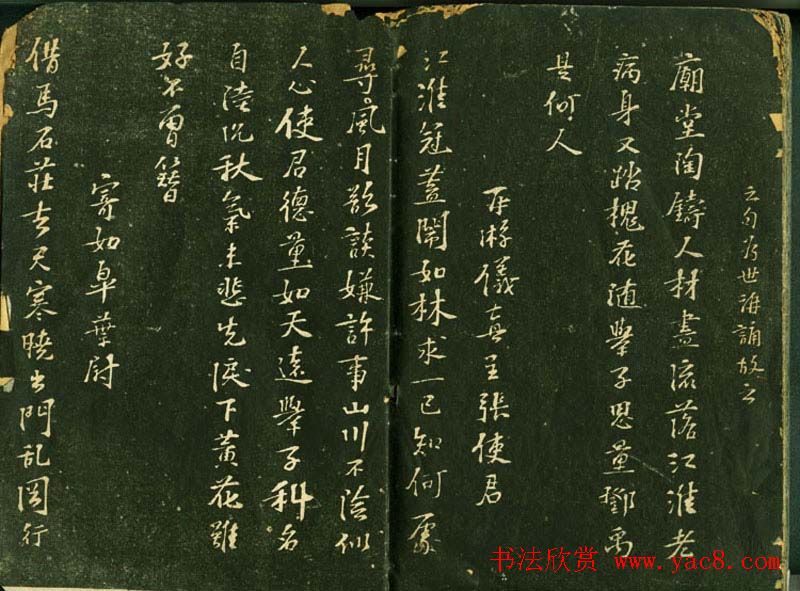 之句为世海誦故云
廟堂陶鑄人材盡流落江淮老
病身又踏槐花随舉子思量鄧禹
是何人
再游儀真呈張使君
江淮冠蓋鬧如林求一已知何處
尋風月欲談嫌許事山川不險似
人心使君德量如天遠舉子科名
自陸沉秋氣未悲先淚下黄花難
好不曾簪
寄如皐葉尉
借馬石莊去天寒曉出門乱岡行
书法欣赏 www.yac8.com